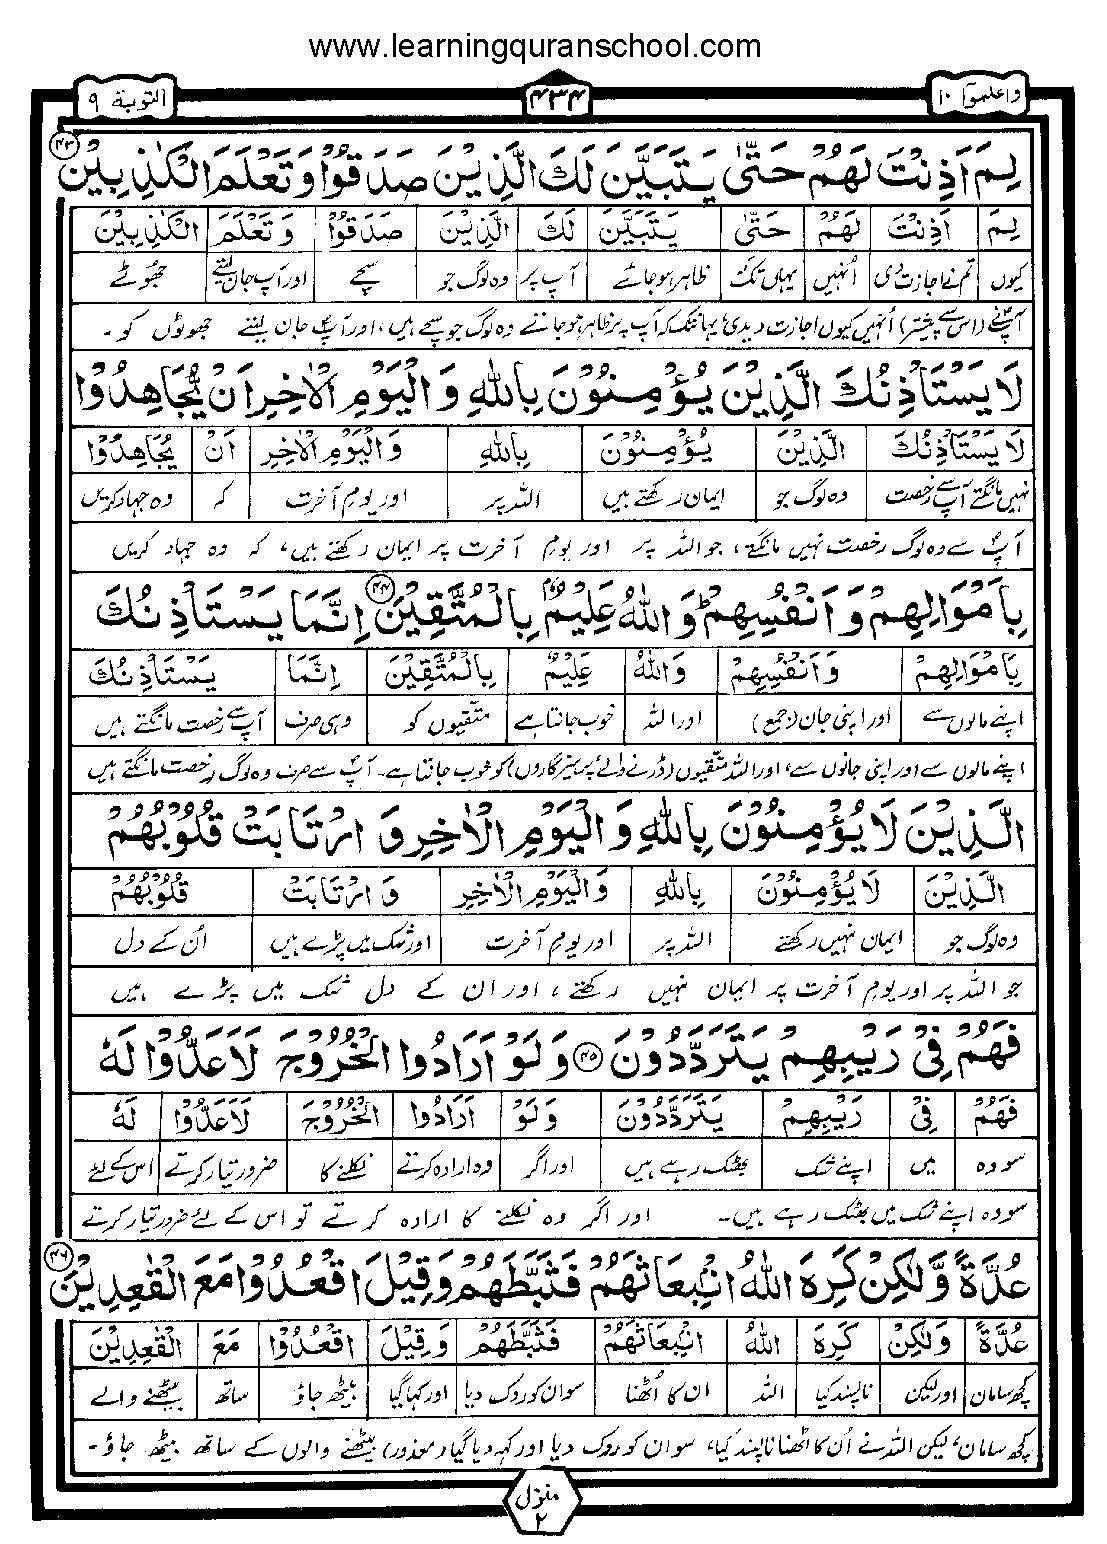 www.learningquranschool.com
واعلموا ۱۰
۴۳۴
التوبة ۹
لِمَ اَذِنْتَ لَهُمْ حَتّٰى يَتَبَيَّنَ لَكَ الَّذِيْنَ صَدَقُوْا وَتَعْلَمَ الْكٰذِبِيْنَ ۴۳
لِمَ اَذِنْتَ لَهُمْ حَتّٰى يَتَبَيَّنَ لَكَ الَّذِيْنَ صَدَقُوْا وَتَعْلَمَ الْكٰذِبِيْنَ
کیوں تم نے اجازت دی اُنہیں یہاں تک کہ ظاہر ہو جائے آپ پر وہ لوگ جو سچے اور آپ جان لیتے جھُوٹے
آپؐ نے (اس سے پیشتر) اُنہیں کیوں اجازت دیدی؟ یہانتک کہ آپ پر ظاہر ہو جاتے وہ لوگ جو سچے ہیں، اور آپؐ جان لیتے جھوٹوں کو۔
لَا يَسْتَاْذِنُكَ الَّذِيْنَ يُؤْمِنُوْنَ بِاللّٰهِ وَالْيَوْمِ الْاٰخِرِ اَنْ يُّجَاهِدُوْا
لَا يَسْتَاْذِنُكَ الَّذِيْنَ يُؤْمِنُوْنَ بِاللّٰهِ وَالْيَوْمِ الْاٰخِرِ اَنْ يُّجَاهِدُوْا
نہیں مانگتے آپ سے رخصت وہ لوگ جو ایمان رکھتے ہیں اللہ پر اور یومِ آخرت کہ وہ جہاد کریں
آپؐ سے وہ لوگ رخصت نہیں مانگتے، جو اللہ پر اور یومِ آخرت پر ایمان رکھتے ہیں، کہ وہ جہاد کریں
بِاَمْوَالِهِمْ وَاَنْفُسِهِمْ ؕ وَاللّٰهُ عَلِيْمٌۢ بِالْمُتَّقِيْنَ ۴۴ اِنَّمَا يَسْتَاْذِنُكَ
بِاَمْوَالِهِمْ وَاَنْفُسِهِمْ وَاللّٰهُ عَلِيْمٌۢ بِالْمُتَّقِيْنَ اِنَّمَا يَسْتَاْذِنُكَ
اپنے مالوں سے اور اپنی جان (جمع) اور اللہ خوب جانتا ہے متقیوں کو وہی صرف آپ سے رخصت مانگتے ہیں
اپنے مالوں سے اور اپنی جانوں سے، اور اللہ متقیوں (ڈرنے والے پرہیزگاروں) کو خوب جانتا ہے۔ آپؐ سے صرف وہ لوگ رخصت مانگتے ہیں
الَّذِيْنَ لَا يُؤْمِنُوْنَ بِاللّٰهِ وَالْيَوْمِ الْاٰخِرِ وَ ارْتَابَتْ قُلُوْبُهُمْ
الَّذِيْنَ لَا يُؤْمِنُوْنَ بِاللّٰهِ وَالْيَوْمِ الْاٰخِرِ وَارْتَابَتْ قُلُوْبُهُمْ
وہ لوگ جو ایمان نہیں رکھتے اللہ پر اور یومِ آخرت اور شک میں پڑے ہیں اُن کے دل
جو اللہ پر اور یومِ آخرت پر ایمان نہیں رکھتے، اور ان کے دل شک میں پڑے ہیں
فَهُمْ فِيْ رَيْبِهِمْ يَتَرَدَّدُوْنَ ۴۵ وَلَوْ اَرَادُوا الْخُرُوْجَ لَاَعَدُّوْا لَهٗ
فَهُمْ فِيْ رَيْبِهِمْ يَتَرَدَّدُوْنَ وَلَوْ اَرَادُوا الْخُرُوْجَ لَاَعَدُّوْا لَهٗ
سو وہ میں اپنے شک بھٹک رہے ہیں اور اگر وہ ارادہ کرتے نکلنے کا ضرور تیار کرتے اس کے لئے
سو وہ اپنے شک میں بھٹک رہے ہیں۔ اور اگر وہ نکلنے کا ارادہ کرتے تو اس کے لئے ضرور تیار کرتے
عُدَّةً وَّلٰكِنْ كَرِهَ اللّٰهُ انْۢبِعَاثَهُمْ فَثَبَّطَهُمْ وَقِيْلَ اقْعُدُوْا مَعَ الْقٰعِدِيْنَ ۴۶
عُدَّةً وَّلٰكِنْ كَرِهَ اللّٰهُ انْۢبِعَاثَهُمْ فَثَبَّطَهُمْ وَقِيْلَ اقْعُدُوْا مَعَ الْقٰعِدِيْنَ
کچھ سامان اور لیکن ناپسند کیا اللہ ان کا اُٹھنا سو ان کو روک دیا اور کہا گیا بیٹھ جاؤ ساتھ بیٹھنے والے
کچھ سامان، لیکن اللہ نے اُن کا اٹھنا ناپسند کیا، سو ان کو روک دیا اور کہہ دیا گیا (معذور) بیٹھنے والوں کے ساتھ بیٹھ جاؤ۔
منزل ۲